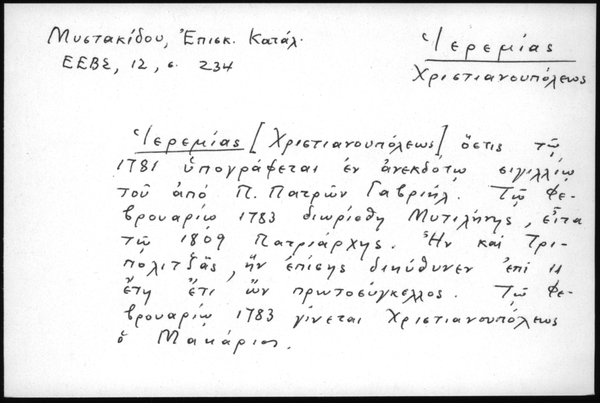 Μυστακίδου, Ἐπισκ. Κατάλ.
ΕΕΒΣ, 12, σ. 234
Ἱερεμίας
Χριστιανουπόλεως
Ἱερεμίας [Χριστιανουπόλεως] ὅστις τῷ
1781 ὑπογράφεται ἐν ἀνεκδότῳ σιγιλλίῳ
τοῦ ἀπό Π. Πατρῶν Γαβριήλ. Τῷ Φε-
βρουαρίῳ 1783 διωρίσθη Μυτιλήνης, εἶτα
τῷ 1809 Πατριάρχης. Ἦν καί Τρι-
πόλιτζᾶς, ἥν ἐπίσης διηύθυνεν ἐπί 11
ἔτη ἔτι ὤν πρωτοσύγκελλος. Τῷ Φε-
βρουαρίῳ 1783 γίνεται Χριστιανουπόλεως
ὁ Μακάριος.